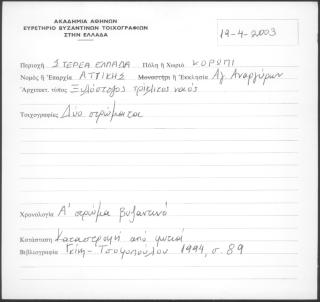 ΑΚΑΔΗΜΙΑ ΑΘΗΝΩΝ
ΕΥΡΕΤΗΡΙΟ ΒΥΖΑΝΤΙΝΩΝ ΤΟΙΧΟΓΡΑΦΙΩΝ
ΣΤΗΝ ΕΛΛΑΔΑ
19-4-2003
Περιοχή ΣΤΕΡΕΑ ΕΛΛΑΔΑ Πόλη ή Χωριό ΚΟΡΩΠΙ
Νομός ή Ἐπαρχία ΑΤΤΙΚΗΣ Μοναστήρι ή Ἐκκλησία Αγ. Αναργύρων
Ἀρχιτεκτ. τύπος Ξυλόστεγος τρίκλιτος ναός
Τοιχογραφίες Δύο στρώματα
Χρονολογία Α' στρώμα βυζαντινό
Κατάσταση Καταστροφή από φωτιά
Βιβλιογραφία Γκίνη-Τσοφοπούλου 1994, σ. 89